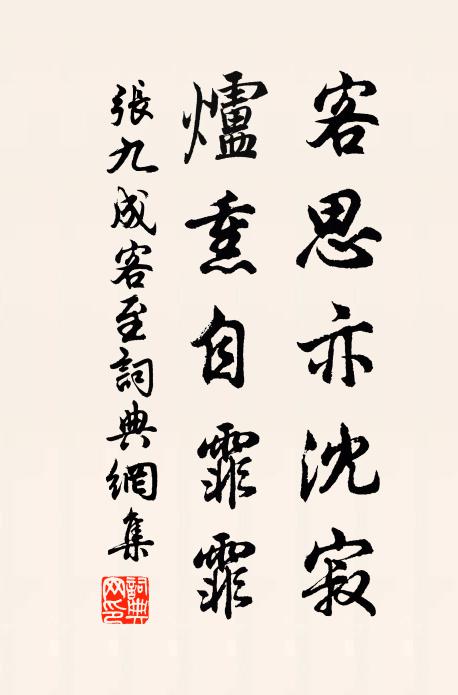 客思亦沈寂
爐熏自霏霏
張九成客至詞典網集
詞典網印